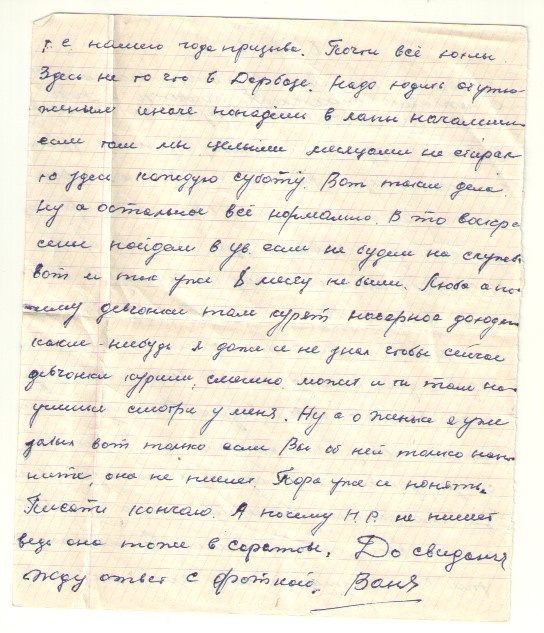 т.е. нашего года призыва. Почти всё хохлы.
Здесь не то что в Дербазе. Надо ходить отутю-
женым иначе попадёшь в лапы начальни-
если там мы целыми месяцами не стирал
то здесь каждую субботу. Вот такие дела
Ну а остальное всё нормально. В это воскре
сенье пойдём в ув. если не будем на службе
вот и так уже месяц не были. Люба а по-
чему девчонки там курят наверное доходя-
какие-нибудь я даже и не знал чтобы сейчас
девчонки курили, смешно, может и ты там на-
училась смотри у меня. Ну а о Женьке я уже
забыл вот только если Вы об ней только напом
ните, она не пишет. Пора уже и понять.
Писать кончаю. А почему Н.Р. не пишет
ведь она тоже в саратове. До свиданья
Жду ответ с фоткой. Ваня